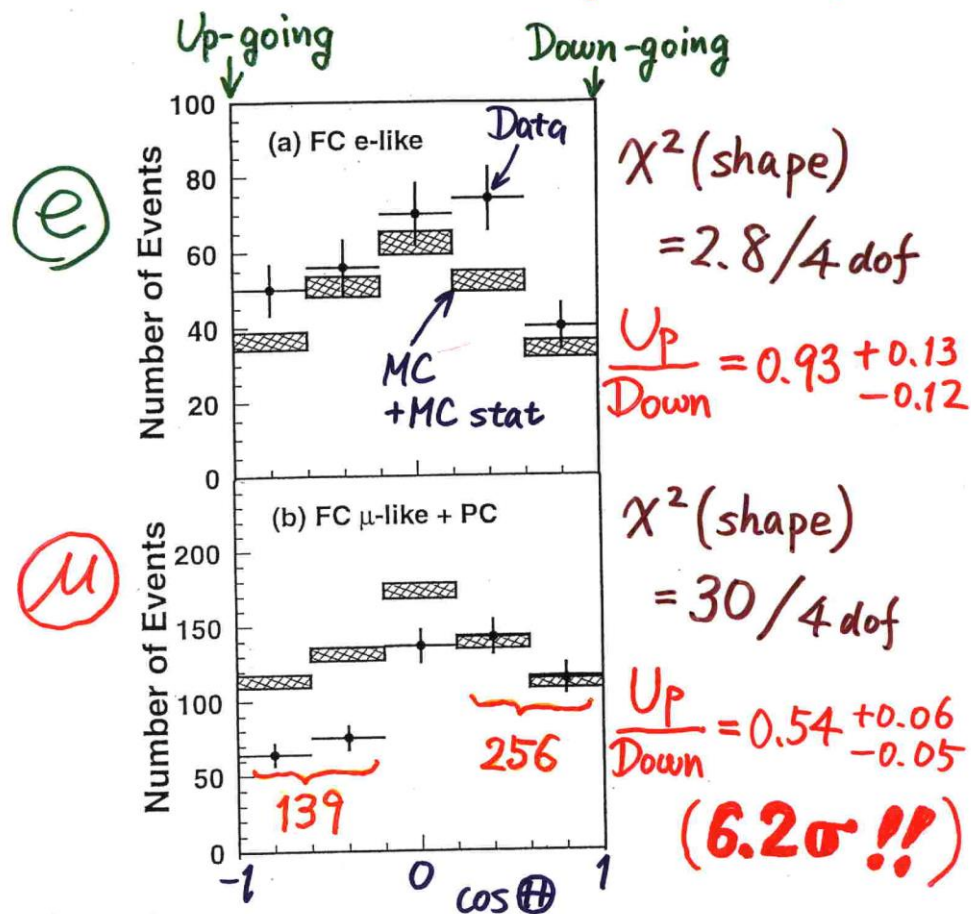 Up-going
Down-going
100
80
60
40
20
0
Number of Events
(a) FC e-like
Data
MC
+MC stat
e
χ² (shape)
= 2.8/4 dof
Up
Down
= 0.93 +0.13
-0.12
200
150
100
50
0
Number of Events
(b) FC μ-like + PC
139
256
μ
χ² (shape)
= 30/4 dof
Up
Down
= 0.54 +0.06
-0.05
(6.2σ !!)
-1
0
1
cos Θ